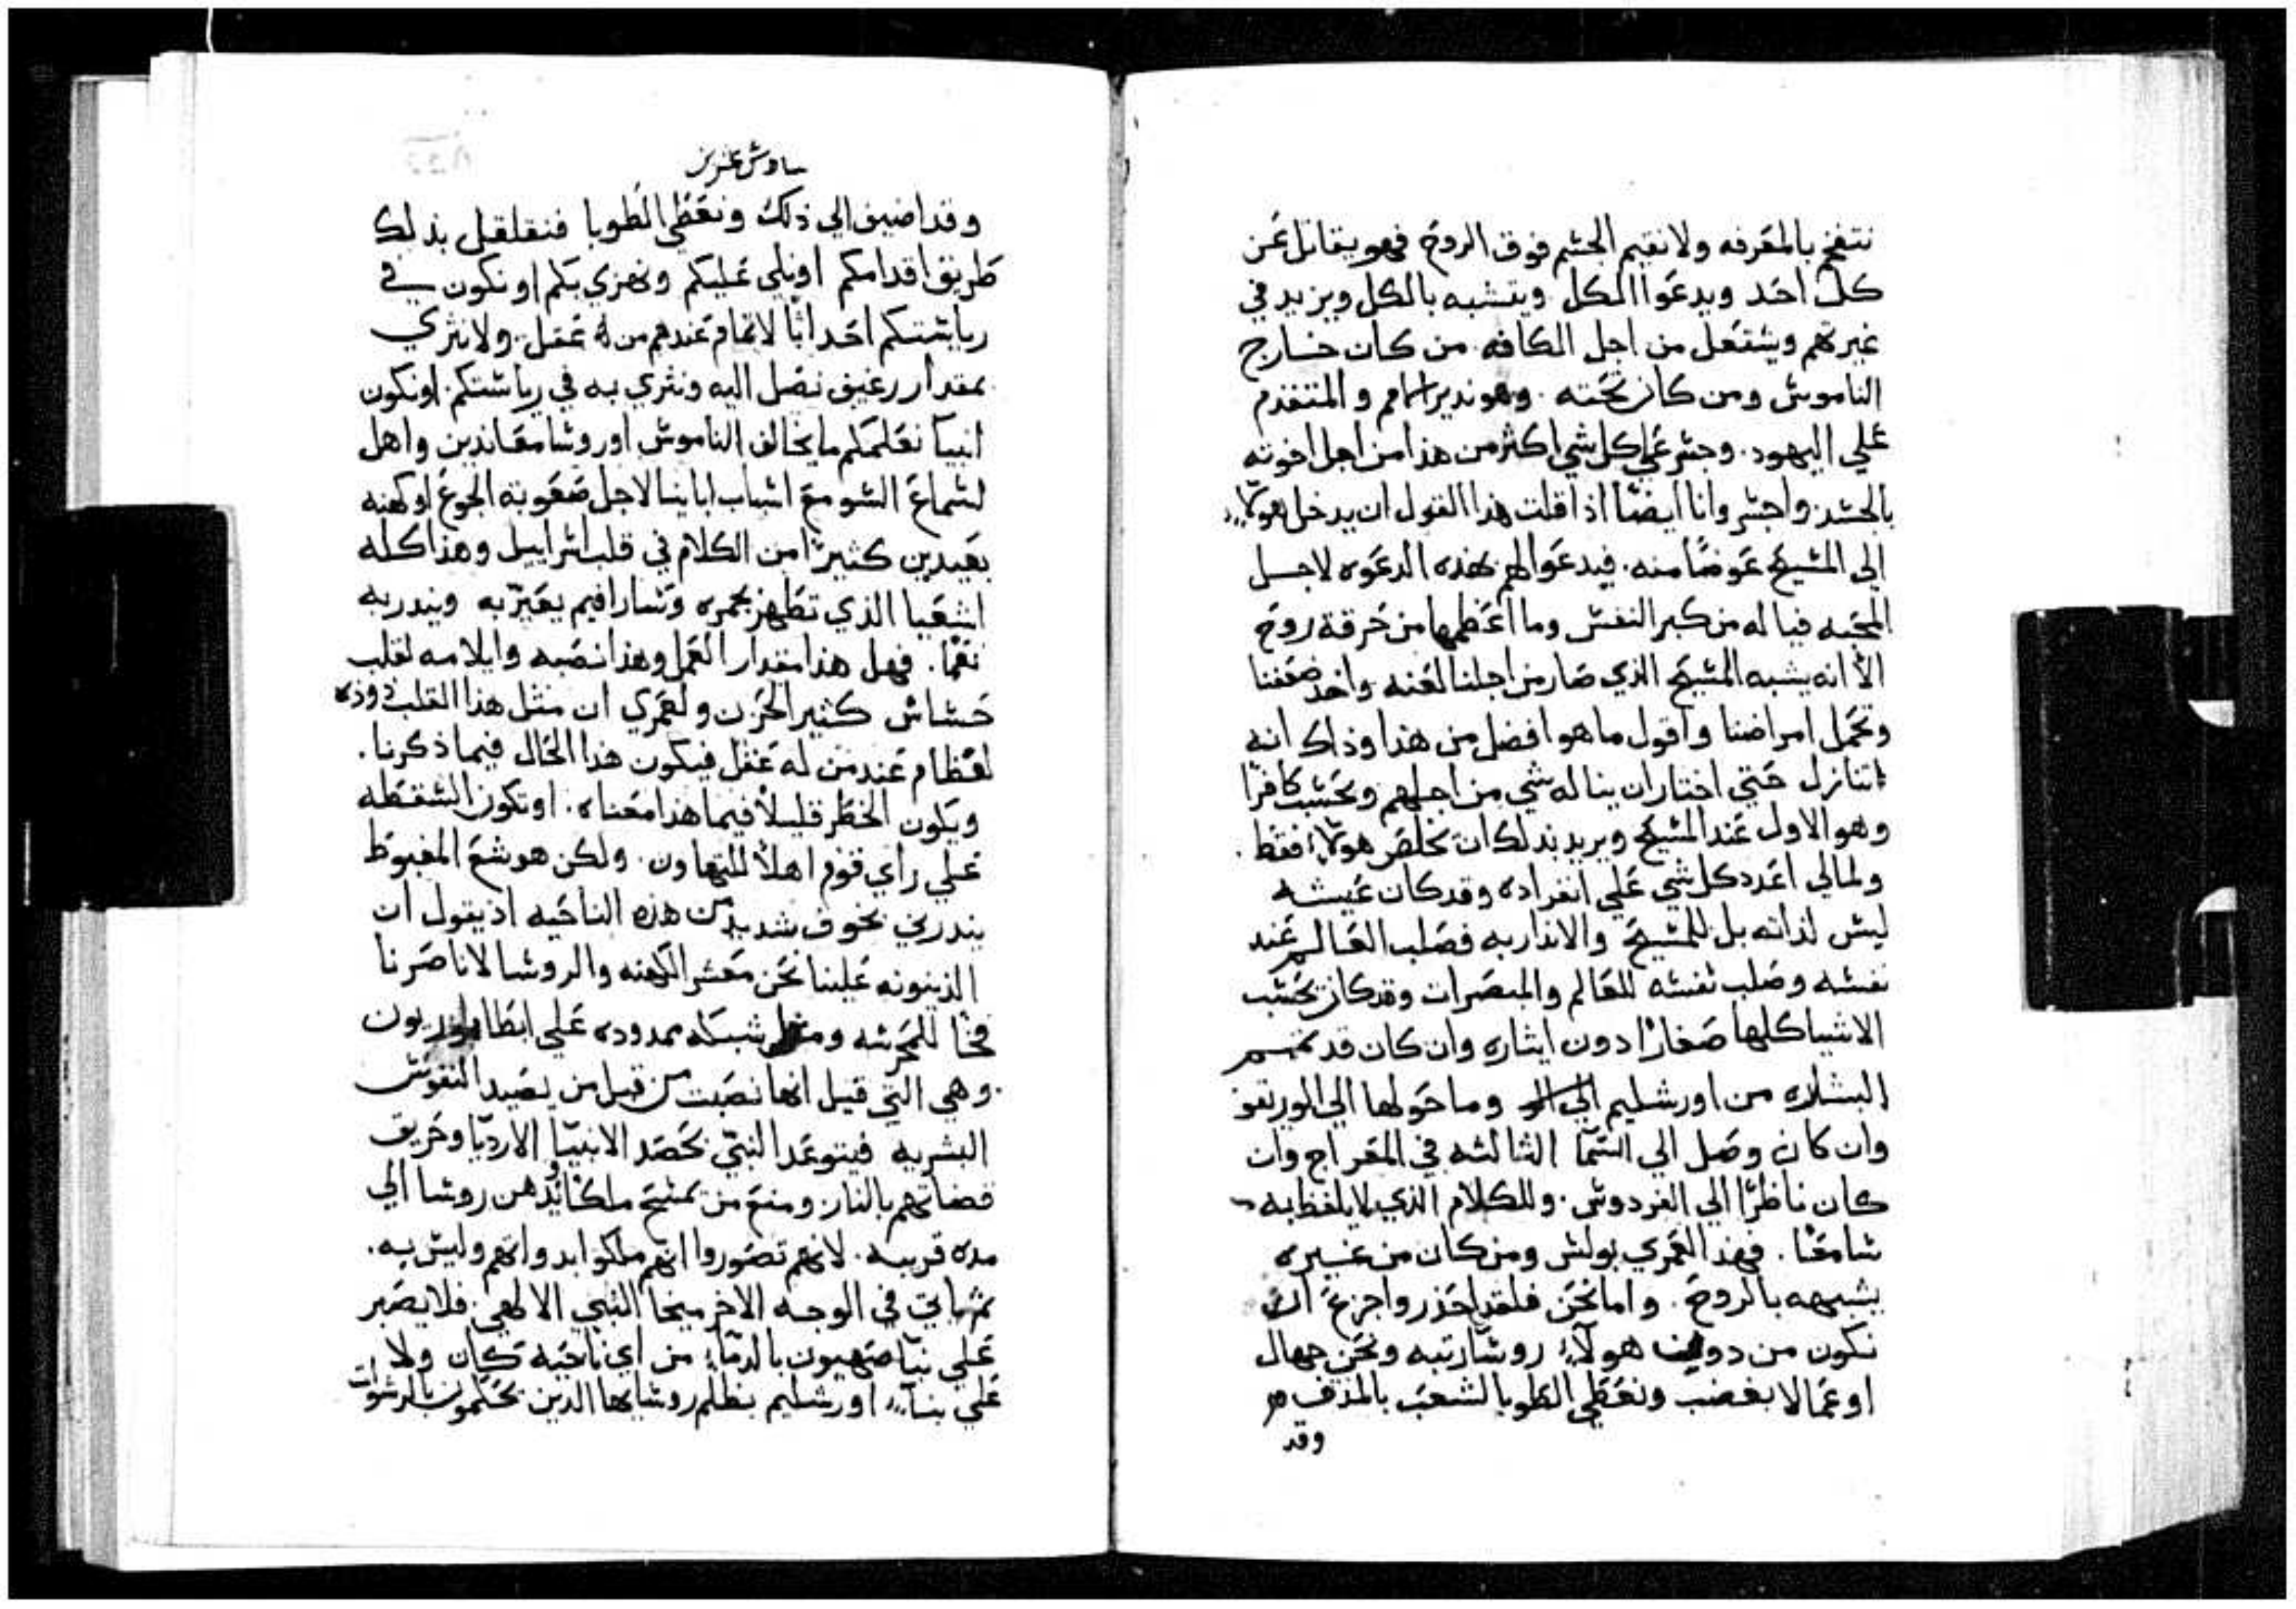 نتنفخ بالمعرفه ولا نقيم الجسم فوق الروح فهو يقاتل عن
كل احد ويدعوا الكل ويتشبه بالكل ويزيد في
غيرتهم ويشتعل من اجل الكافه. من كان خارج
الناموس ومن كان تحته. وهو نذير الامم والمتقدم
علي اليهود. وجسر علي كل شي اكثر من هذا من اجل اخوته
بالجسد. واجسر وانا ايضًا اذا قلت هذا القول ان يدخل هولآء
الي المسيح عوضًا منه. فيدعوا لهم بهذه الدعوه لاجل
المحبه فيا له من كبر النفس وما اعظمها من حرقة روح
الا انه يشبه المسيح الذي صار من اجلنا لعنه واخذ ضعفنا
وتحمل امراضنا واقول ما هو افضل من هذا وذاك انه
اتنازل حتي اختار ان يناله شي من اجلهم ويحسب كافرًا
وهو الاول عند المسيح ويريد بذلك ان يخلص هولآء فقط.
ولمالي اعدد كل شي علي انفراده وقد كان عيشه
ليس لذاته بل للمسيح والانذار به فصلب العالم عند
نفسه وصلب نفسه للعالم والمبصرات وقد كان يحسب
الاشيا كلها صغارًا دون ايثاره وان كان قد تمم
البشاره من اورشليم وما حولها الي الوريقو
وان كان وصل الي السمآ الثالثه في المعراج وان
كان ناظرًا الي الفردوس. وللكلام الذي لا يلفظ به
سامعًا. فهذا لعمري بولس ومن كان من غيره
يشبهه بالروح. واما نحن فلقد احذر واجزع ان
نكون من دون هولآء روسًا رتبه ونحن جهال
او عمالا بغضب ونعطي الطوبا لشعب بالمذق
وقد
وقد اضيف الي ذلك ونعطي الطوبا فنقلقل بذلك
طريق اقدامكم او نلي عليكم ونهزي بكم او نكون في
رياستكم احداثًا لا تمام عندهم من له عقل. ولا نثري
بمقدار رغيف نصل اليه ونثري به في رياستكم. او نكون
انبيآ نعلمكم ما يخالف الناموس او روسا معاندين واهل
لسماع السو مع اسباب اباينا لاجل صعوبة الجوع او كهنه
بعيدين كثيرًا من الكلام في قلب اسراييل وهذا كله
اشعيا الذي تطهر بجمره وسارافيم يعيرّ به وينذر به
نعمًا. فهل هذا مقدار العمل وهذا نصبه وايلامه لقلب
حساس كثير الحزن ولعمري ان مثل هذا القلب دوده
لعظام عند من له عقل فيكون هذا الحال فيما ذكرنا.
ويكون الخطر قليلاً فيما هذا معناه. او تكون السقطه
علي راي قوم اهلاً للتهاون. ولكن هوشع المغبوط
ينذرني بخوف شديد من هذه الناحيه اذ يقول ان
الدينونه علينا نحن معشر الكهنه والروسا لاننا صرنا
فخًا للمحرسه شبكه ممدوده علي ايطابوريون
وهي التي قيل انها نصبت من قبل من يصيد النفوس
البشريه فيتوعد النبي بحصد الانبيآ الارديا وحريق
قضاتهم بالنار. ومنع من تمسيح ملكًا روسا الي
مدة قريبه. لانهم تصوروا انهم ملكوا بدواتهم وليس به.
ثم ياتي في الوجه الاخر ميخا النبي الالهي فلا يصبر
علي بنيآ صهيون بالدمآء من اي ناحيه كان ولا
علي بنآء اورشليم بظلم روسايها الدين يحكمون بالرشوات